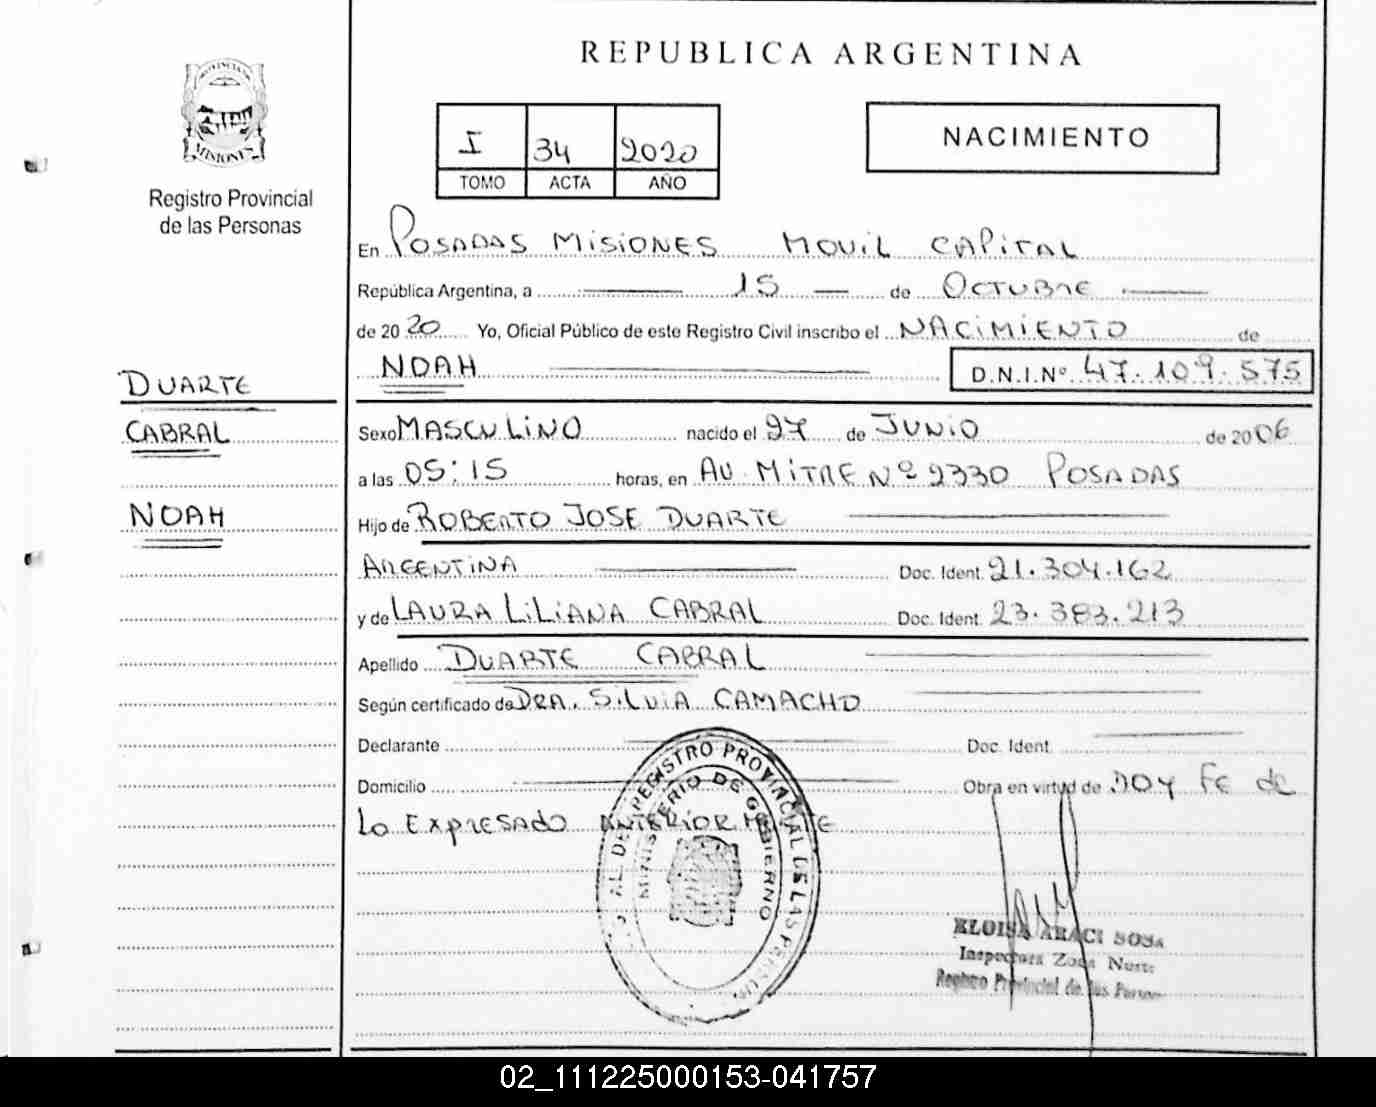 REPUBLICA ARGENTINA
PROVINCIA DE
MISIONES
Registro Provincial
de las Personas
I 34 2020
TOMO ACTA AÑO
NACIMIENTO
En POSADAS MISIONES MOVIL CAPITAL
República Argentina, a 15 de OCTUBRE
de 2020 Yo, Oficial Público de este Registro Civil inscribo el NACIMIENTO de
NOAH D.N.I.Nº 47.109.575
DUARTE
CABRAL
NOAH
Sexo MASCULINO nacido el 27 de JUNIO de 2006
a las 05:15 horas, en AV. MITRE Nº 2330 POSADAS
Hijo de ROBERTO JOSE DUARTE
ARGENTINA Doc. Ident. 21.304.162
y de LAURA LILIANA CABRAL Doc. Ident. 23.383.213
Apellido DUARTE CABRAL
Según certificado de DRA. SILVIA CAMACHO
Declarante Doc. Ident.
Domicilio Obra en virtud de DOY FE de
Lo EXPRESADO ANTERIORMENTE
REGISTRO PROVINCIAL DE LAS
MINISTERIO DE GOBIERNO
ELOISA ARACI SOSA
Inspectora Zona Norte
Registro Provincial de las Person
02_111225000153-041757